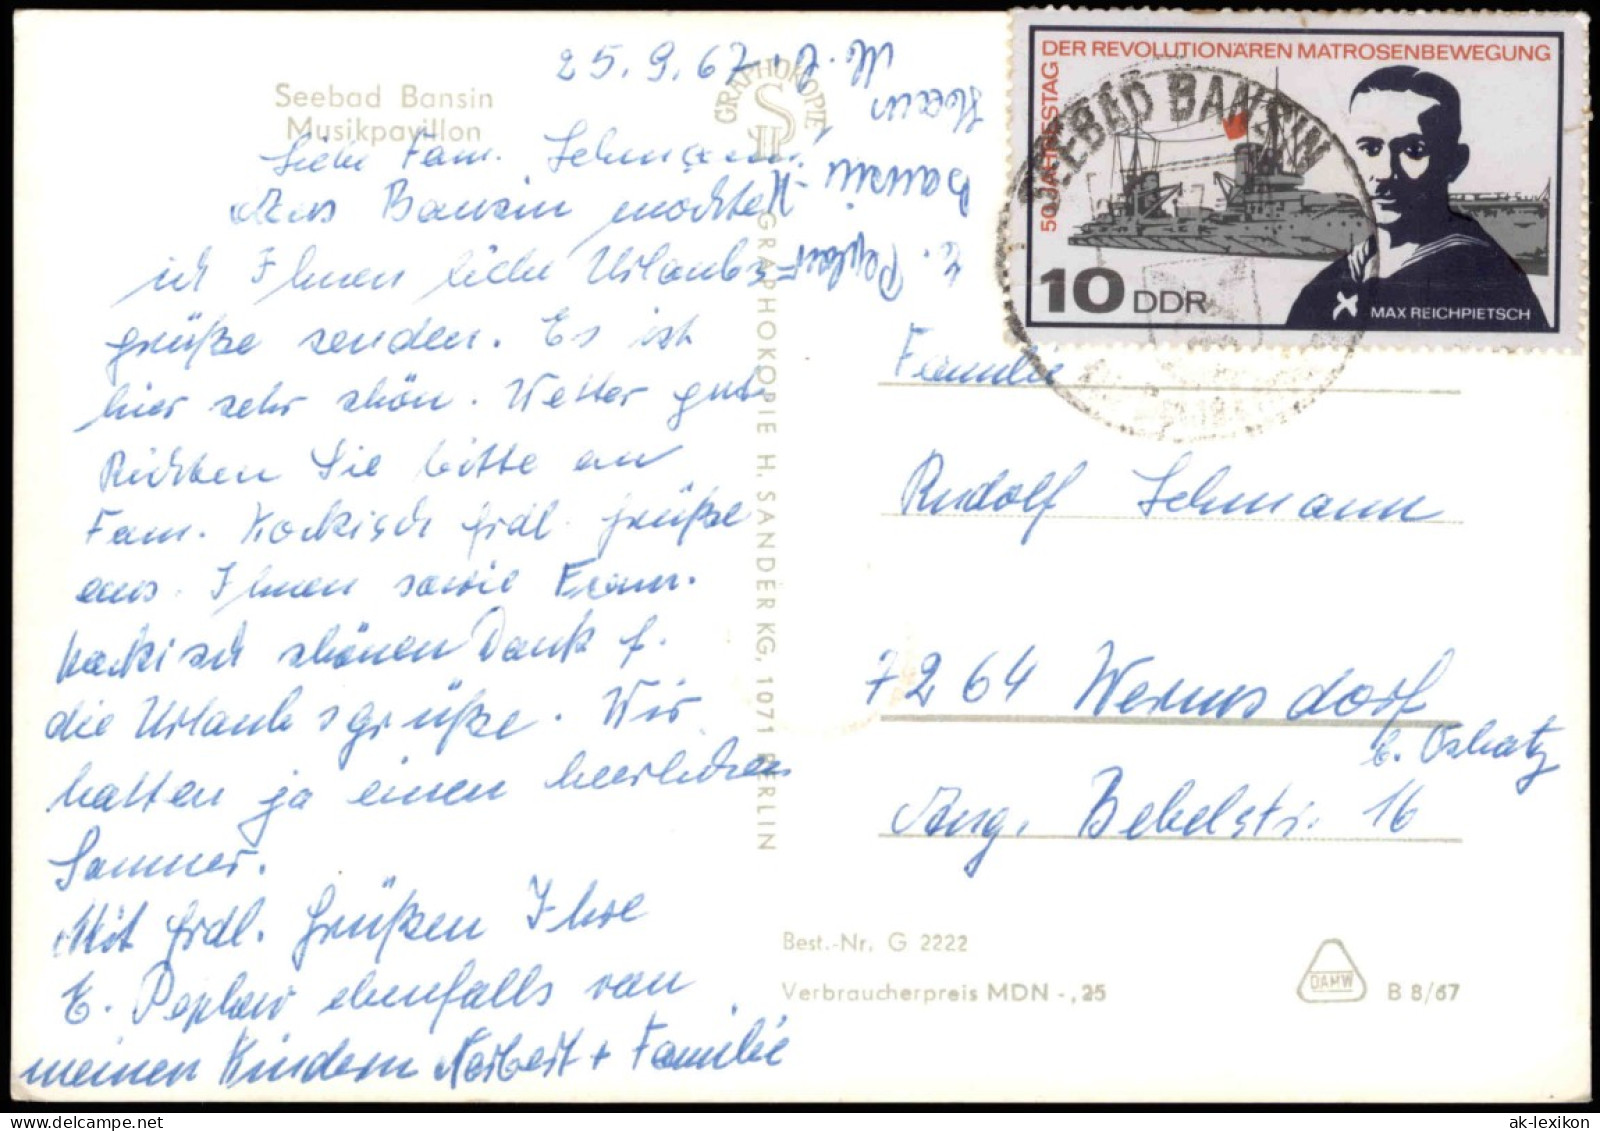 Seebad Bansin
Musikpavillon
25.9.67
Liebe Fam. Lehmann!
Aus Bansin möchte
ich Ihnen liebe Urlaubs=
grüße senden. Es ist
hier sehr schön. Wetter gut
Richten Sie bitte an
Fam. Kockisch frdl. Grüße
aus. Ihnen sowie Fam.
Kockisch schönen Dank f.
die Urlaubsgrüße. Wir
hatten ja einen herrlichen
Sommer.
Mit frdl. Grüßen Ihre
E. Peplow ebenfalls von
meinen Kindern Norbert + Familie
E. Peplow
Bansin
GRAPHOKOPIE
GRAPHOKOPIE H. SANDER KG, 1071 BERLIN
50. JAHRESTAG DER REVOLUTIONÄREN MATROSENBEWEGUNG
10 DDR
MAX REICHPIETSCH
SEEBAD BANSIN
Familie
Rudolf Lehmann
7264 Wermsdorf
b. Oschatz
Aug. Bebelstr. 16
Best.-Nr. G 2222
Verbraucherpreis MDN -,25
DAMW
B 8/67
ak-lexikon.com